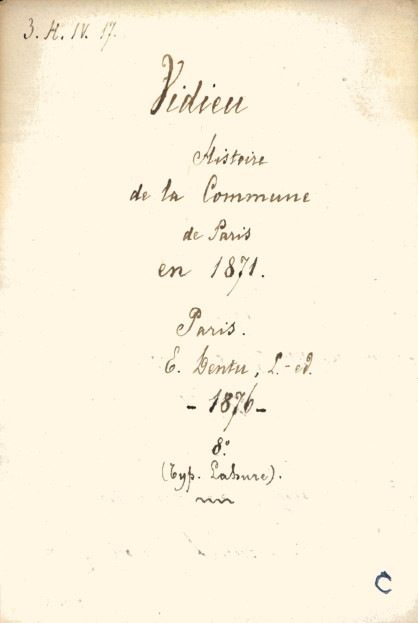 3. H. IV. 17.
Vidieu
Histoire
de la Commune
de Paris
en 1871.
Paris.
E. Dentu, L.-ed.
- 1876 -
8°
(Typ. Lahure).
C